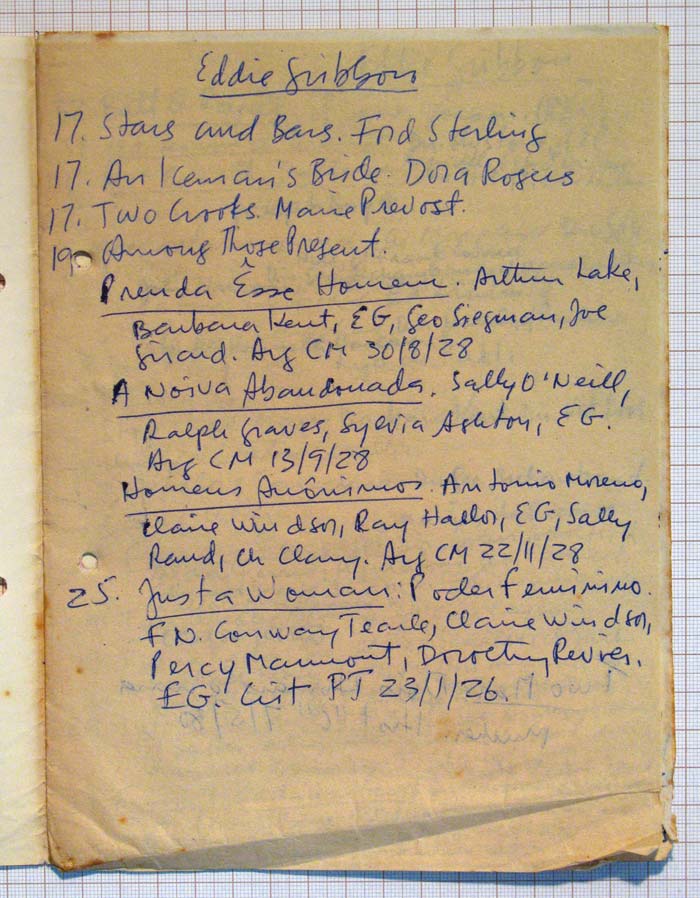 Eddie Gribbon
17. Stars and Bars. Ford Sterling
17. An Iceman's Bride. Dora Rogers
17. Two Crooks. Marie Prevost.
19. Among Those Present.
Prenda Êsse Homem. Arthur Lake,
Barbara Kent, EG, Geo Siegman, Joe
Girard. Arg CM 30/8/28
A Noiva Abandonada. Sally O'Neill,
Ralph Graves, Sylvia Ashton, EG.
Arg CM 13/9/28
Homens Anônimos. Antonio Moreno,
Claire Windsor, Ray Hallor, EG, Sally
Rand, Ch Clary. Arg CM 22/11/28
25. Just a Woman: Poder Feminino.
F.N. Conway Tearle, Claire Windsor,
Percy Marmont, Dorothy Revier,
EG. Crit PT 23/1/26.